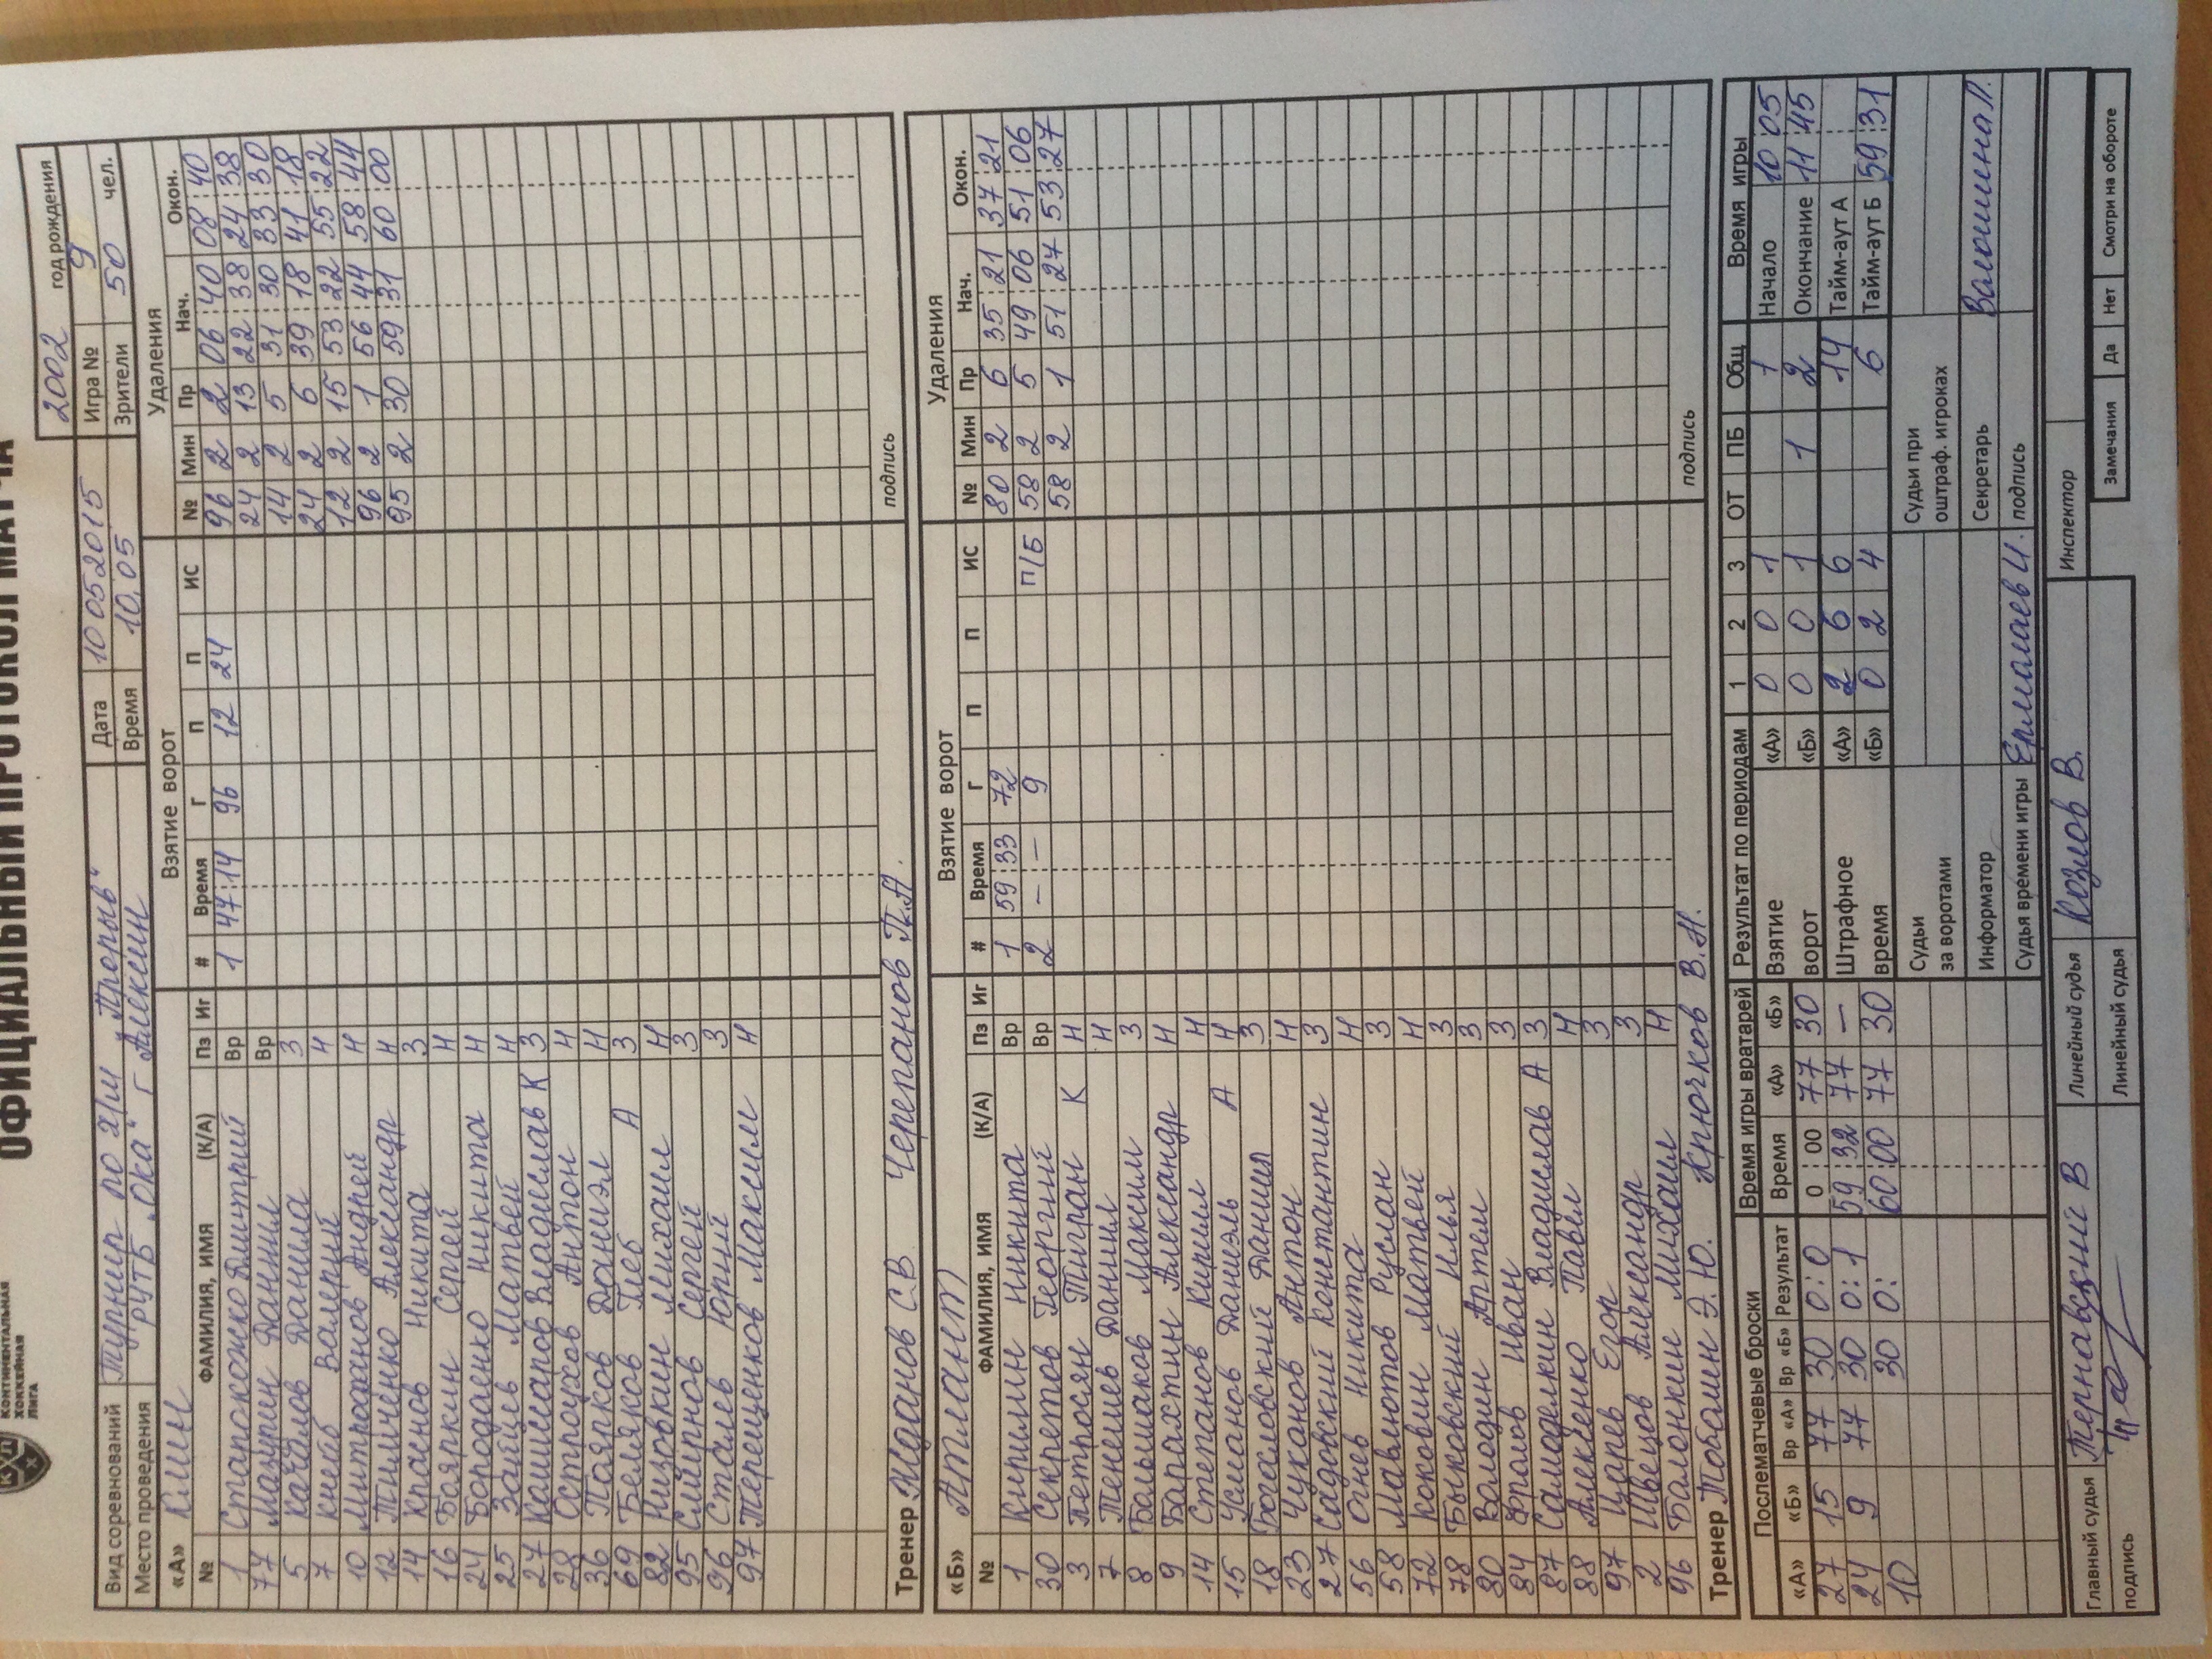 КОНТИНЕНТАЛЬНАЯ
ХОККЕЙНАЯ
ЛИГА
ОФИЦИАЛЬНЫЙ ПРОТОКОЛ МАТЧА
2002 год рождения
Вид соревнований Турнир по х/ш „Прорыв" Дата 10 05 2015 Игра № 9
Место проведения РУТБ „Ока" г Алексин Время 10.05 Зрители 50 чел.
«А» Клин Взятие ворот Удаления
№ ФАМИЛИЯ, ИМЯ (К/А) Пз Иг # Время Г П П ИС № Мин Пр Нач. Окон.
1 Стапокожко Дмитрий Вр 1 47:14 96 12 24 96 2 2 06:40 08:40
77 Мазурин Даниил Вр 24 2 13 22:38 24:38
5 Качалов Данила З 14 2 5 31:30 33:30
7 Кнейб Валерий Н 24 2 6 39:18 41:18
10 Митроханов Андрей Н 12 2 15 53:22 55:22
12 Тимченко Александр Н 96 2 1 56:44 58:44
14 Краснов Никита З 95 2 30 59:31 60:00
16 Бояркин Сергей Н
24 Бородаенко Никита Н
25 Зайцев Матвей Н
27 Комиссаров Владислав К З
28 Остроухов Антон Н
36 Поярков Даниэл Н
69 Беляков Глеб А З
82 Низовкин Михаил Н
95 Смирнов Сергей З
96 Сталев Юрий З
97 Терещенков Максим Н
Тренер Жданов С.В Черепанов П.А. подпись
«Б» Атлант Взятие ворот Удаления
№ ФАМИЛИЯ, ИМЯ (К/А) Пз Иг # Время Г П П ИС № Мин Пр Нач. Окон.
1 Кирилин Никита Вр 1 59:33 72 80 2 6 35:21 37:21
30 Секретов Георгий Вр 2 — — 9 П/Б 58 2 5 49:06 51:06
3 Петросян Тигран К Н 58 2 1 51:27 53:27
7 Тенешев Даниил Н
8 Большаков Максим З
9 Барахтин Александр Н
14 Степанов Кирилл Н
15 Усманов Даниэль А Н
18 Богословский Даниил З
23 Чуканов Антон Н
27 Садовский Константин З
56 Огнев Никита Н
58 Мавлютов Руслан З
72 Коковин Матвей Н
78 Быковский Илья З
80 Володин Артем З
84 Фролов Иван З
87 Самоделкин Владислав А З
88 Алексенко Павел Н
97 Царев Егор З
2 Швецов Александр З
96 Балонкин Михаил Н
Тренер Тобашин Э.Ю. Крючков В.Н. подпись
Послематчевые броски Время игры вратарей Результат по периодам 1 2 3 ОТ ПБ Общ Время игры
«А» «Б» Вр «А» Вр «Б» Результат Время «А» «Б» Взятие ворот «А» 0 0 1 1 Начало 10 05
27 15 77 30 0:0 0:00 77 30 «Б» 0 0 1 1 2 Окончание 11 45
24 9 77 30 0:1 59:32 77 — Штрафное время «А» 2 6 6 14 Тайм-аут А
10 30 0: 60:00 77 30 «Б» 0 2 4 6 Тайм-аут Б 59:31
Судьи за воротами Судьи при оштраф. игроках
Информатор Секретарь Валюшина Л.
Судья времени игры Ермолаев И. подпись
Главный судья Тернавский В Линейный судья Козлов В. Инспектор
подпись Линейный судья Замечания Да Нет Смотри на обороте